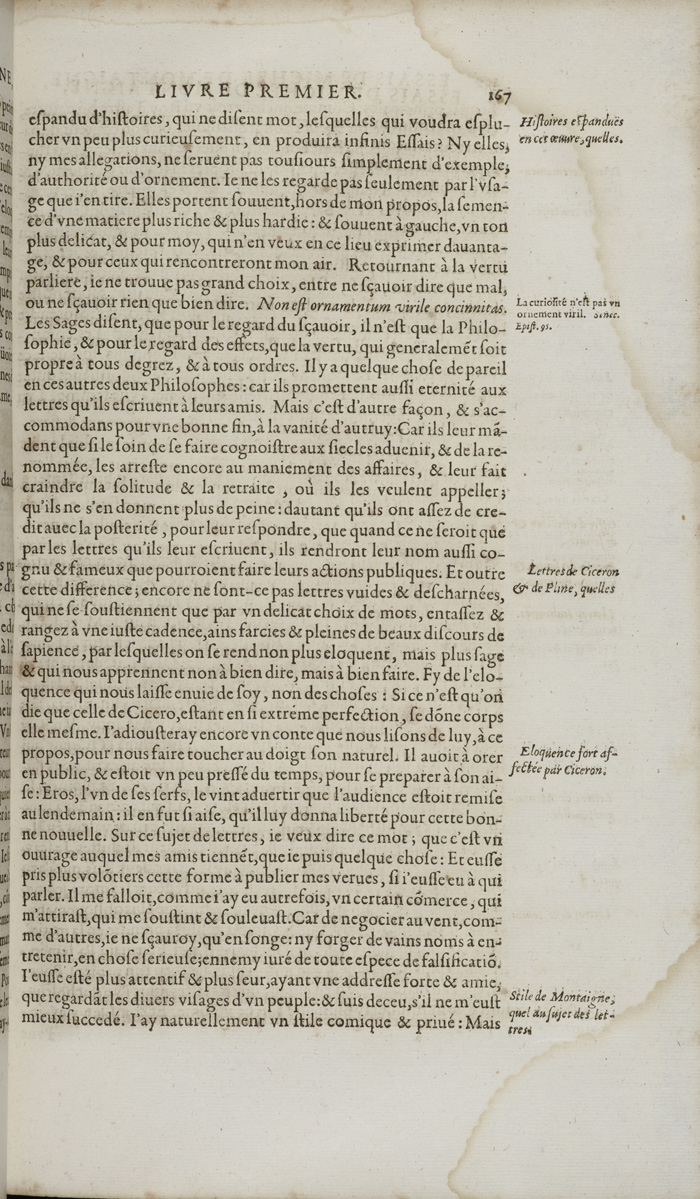 LIVRE PREMIER. 167
eſpandu d'hiſtoires, qui ne diſent mot, leſquelles qui voudra eſplu-
cher vn peu plus curieuſement, en produira infinis Eſſais? Ny elles,
ny mes allegations, ne ſeruent pas touſiours ſimplement d'exemple,
d'authorité ou d'ornement. Ie ne les regarde pas ſeulement par l'vſa-
ge que i'en tire. Elles portent ſouuent, hors de mon propos, la ſemen-
ce d'vne matiere plus riche & plus hardie: & ſouuent à gauche, vn ton
plus delicat, & pour moy, qui n'en veux en ce lieu exprimer dauanta-
ge, & pour ceux qui rencontreront mon air. Retournant à la vertu
parliere, ie ne trouue pas grand choix, entre ne ſçauoir dire que mal,
ou ne ſçauoir rien que bien dire. Non eſt ornamentum virile concinnitas.
Les Sages diſent, que pour le regard du ſçauoir, il n'eſt que la Philo-
ſophie, & pour le regard des effets, que la vertu, qui generalemẽt ſoit
propre à tous degrez, & à tous ordres. Il y a quelque choſe de pareil
en ces autres deux Philoſophes: car ils promettent auſſi eternité aux
lettres qu'ils eſcriuent à leurs amis. Mais c'eſt d'autre façon, & s'ac-
commodans pour vne bonne fin, à la vanité d'autruy: Car ils leur mã-
dent que ſi le ſoin de ſe faire cognoiſtre aux ſiecles aduenir, & de la re-
nommée, les arreſte encore au maniement des affaires, & leur fait
craindre la ſolitude & la retraite, où ils les veulent appeller;
qu'ils ne s'en donnent plus de peine: dautant qu'ils ont aſſez de cre-
dit auec la poſterité, pour leur reſpondre, que quand ce ne ſeroit que
par les lettres qu'ils leur eſcriuent, ils rendront leur nom auſſi co-
gnu & fameux que pourroient faire leurs actions publiques. Et outre
cette difference; encore ne ſont-ce pas lettres vuides & deſcharnées,
qui ne ſe ſouſtiennent que par vn delicat choix de mots, entaſſez &
rangez à vne iuſte cadence, ains farcies & pleines de beaux diſcours de
ſapience, par leſquelles on ſe rend non plus eloquent, mais plus ſage
& qui nous apprennent non à bien dire, mais à bien faire. Fy de l'elo-
quence qui nous laiſſe enuie de ſoy, non des choſes: Si ce n'eſt qu'on
die que celle de Cicero, eſtant en ſi extréme perfection, ſe dõne corps
elle meſme. I'adiouſteray encore vn conte que nous liſons de luy, à ce
propos, pour nous faire toucher au doigt ſon naturel. Il auoit à orer
en public, & eſtoit vn peu preſſé du temps, pour ſe preparer à ſon ai-
ſe: Eros, l'vn de ſes ſerfs, le vint aduertir que l'audience eſtoit remiſe
au lendemain: il en fut ſi aiſe, qu'il luy donna liberté pour cette bon-
ne nouuelle. Sur ce ſujet de lettres, ie veux dire ce mot; que c'eſt vn
ouurage auquel mes amis tiennẽt, que ie puis quelque choſe: Et euſſe
pris plus volõtiers cette forme à publier mes verues, ſi i'euſſe eu à qui
parler. Il me falloit, comme i'ay eu autrefois, vn certain cõmerce, qui
m'attiraſt, qui me ſouſtint & ſouleuaſt. Car de negocier au vent, com-
me d'autres, ie ne ſçauroy, qu'en ſonge: ny forger de vains noms à en-
tretenir, en choſe ſerieuſe; ennemy iuré de toute eſpece de falſificatiõ.
I'euſſe eſté plus attentif & plus ſeur, ayant vne addreſſe forte & amie,
que regardãt les diuers viſages d'vn peuple: & ſuis deceu, s'il ne m'euſt
mieux ſuccedé. I'ay naturellement vn ſtile comique & priué: Mais
Hiſtoires eſpanduës
en cet œuure, quelles.
La curioſité n'eſt pas vn
ornement viril. Senec.
Epiſt. 95.
Lettres de Ciceron
& de Pline, quelles
Eloquence fort af-
fectée par Ciceron.
Stile de Montaigne,
quel au ſujet des let-
tres.